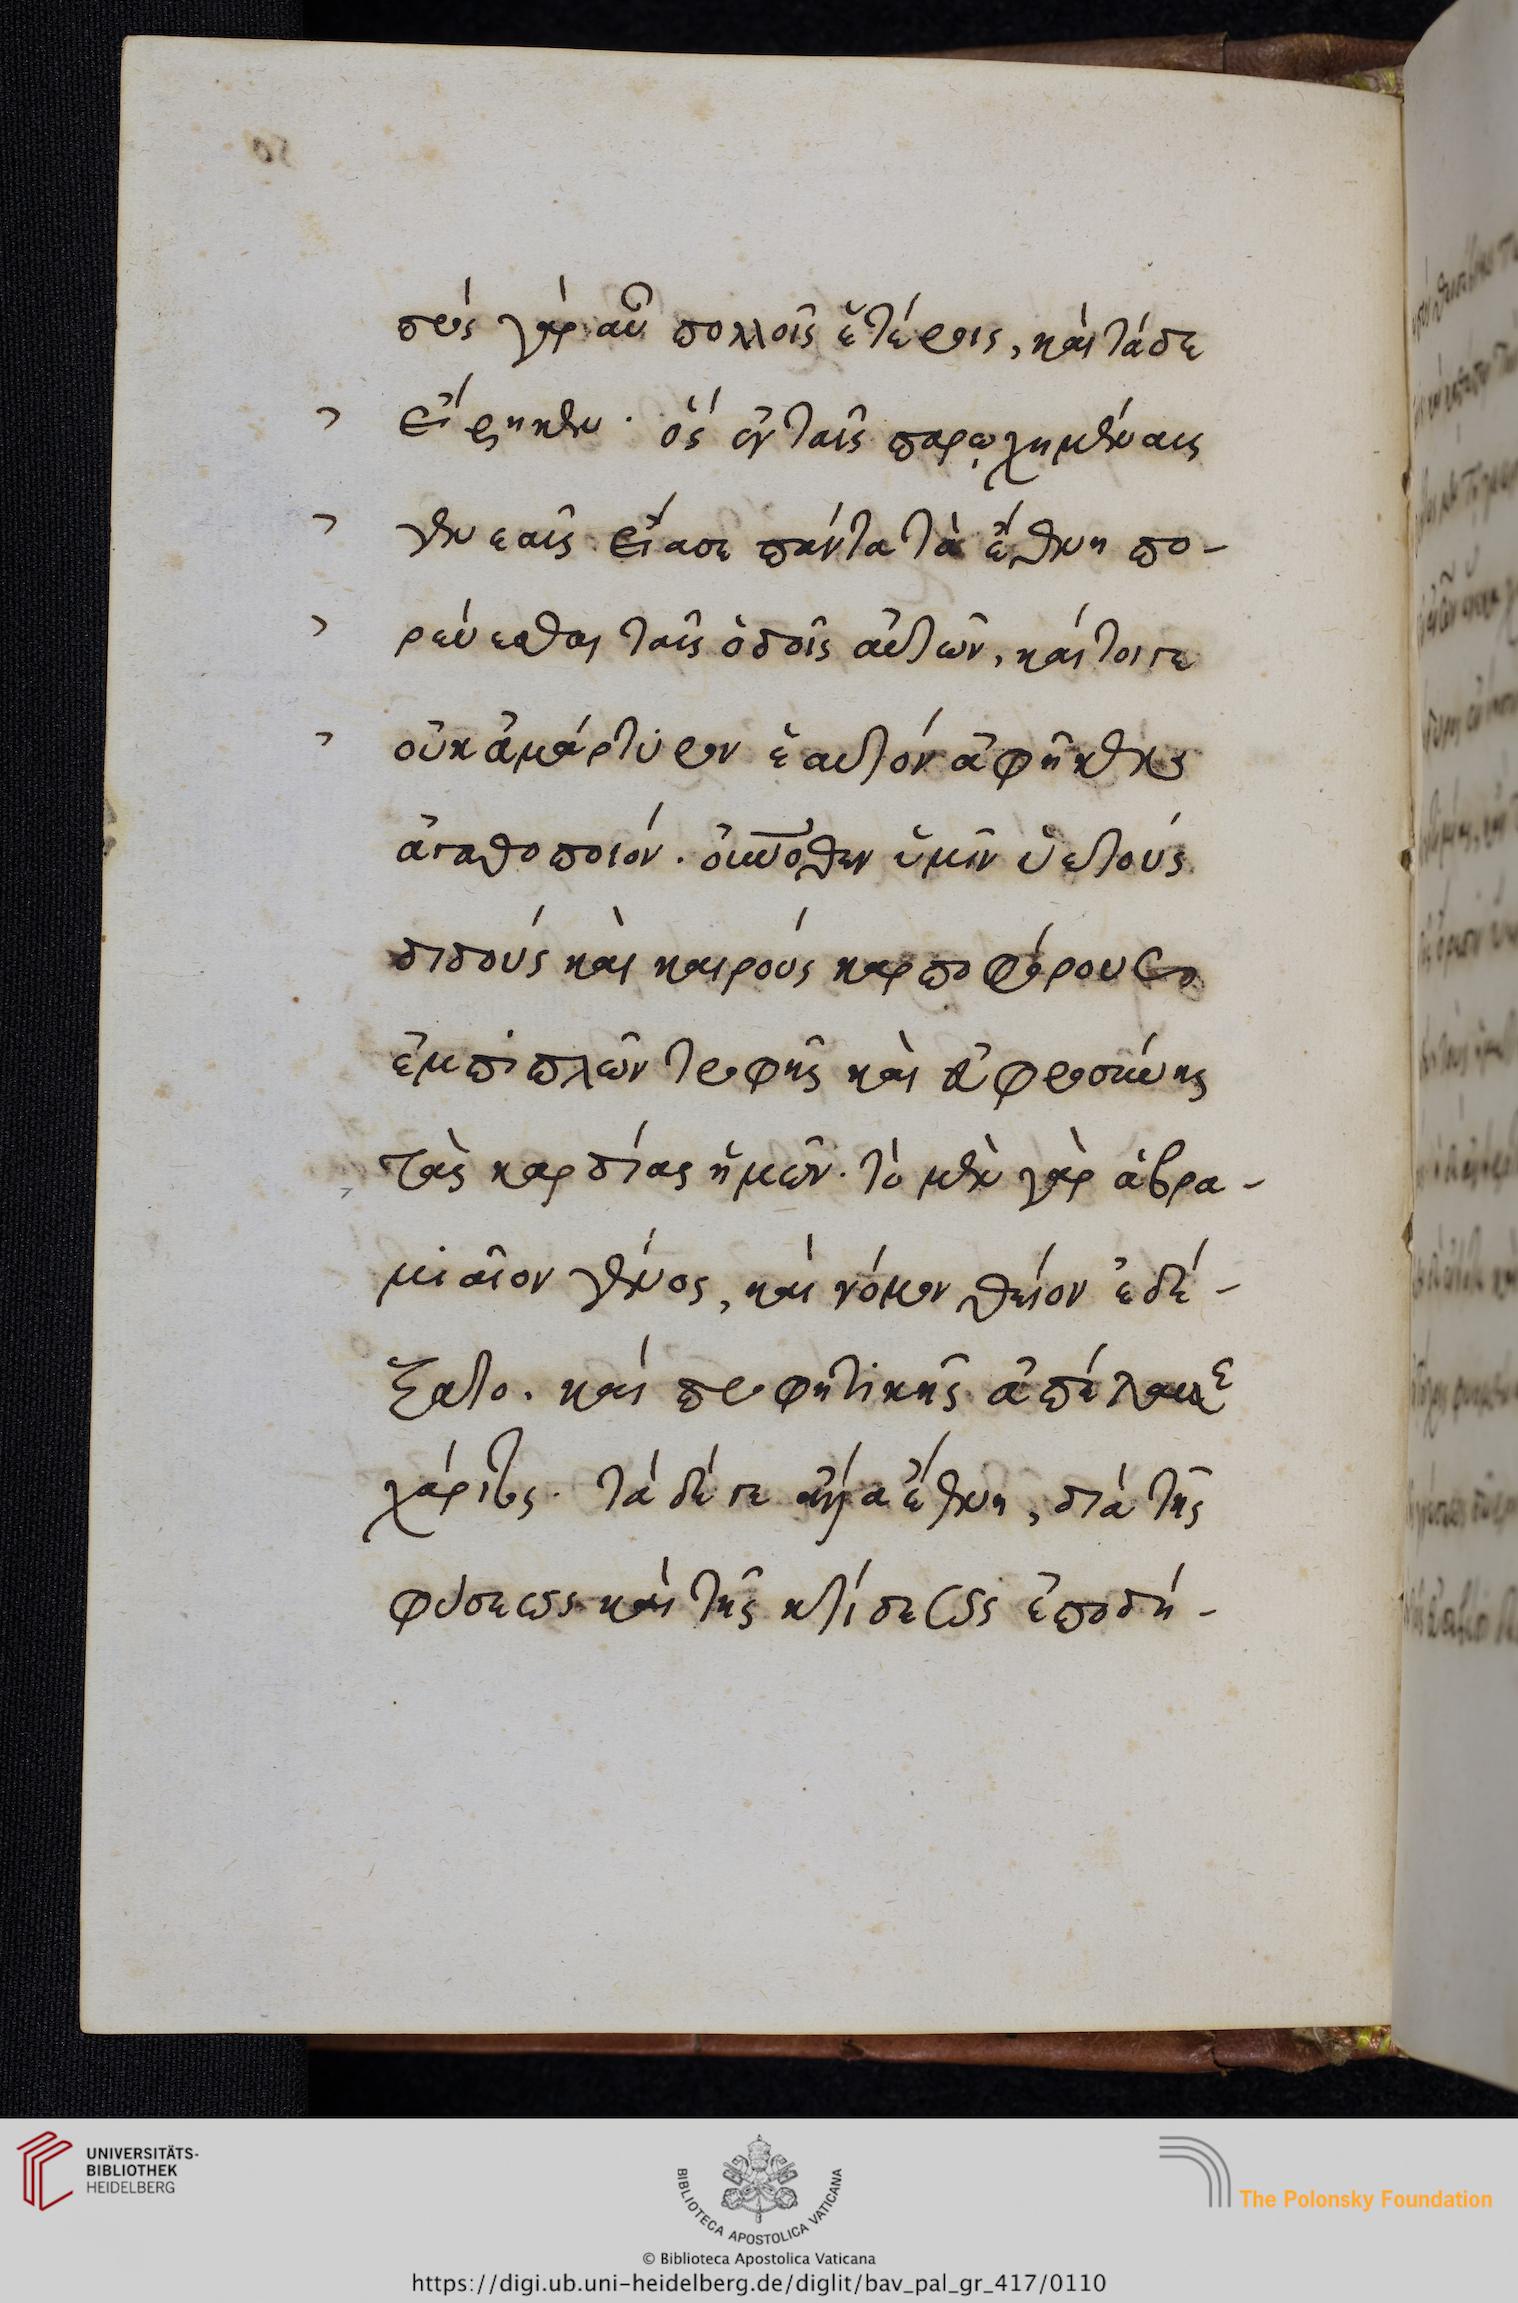 πρὸς γὰρ αὖ πολλοῖς ἑτέροις, καὶ τάδε
εἴρηκεν· ὃς ἐν ταῖς παρῳχημέναις
γενεαῖς εἴασε πάντα τὰ ἔθνη πο-
ρεύεσθαι ταῖς ὁδοῖς αὐτῶν, καίτοι γε
οὐκ ἀμάρτυρον ἑαυτὸν ἀφῆκεν
ἀγαθοποιόν. οὐρανόθεν ὑμῖν ὑετούς
διδούς καὶ καιρούς καρποφόρους
ἐμπιπλῶν τροφῆς καὶ εὐφροσύνης
τὰς καρδίας ἡμῶν. τὸ μὲν γὰρ ἀβρα-
μιαῖον γένος, καὶ νόμον θεῖον ἐδέ-
ξατο. καὶ προφητικῆς ἀπέλαυσε
χάριτος. τὰ δέ γε ἄλλα ἔθνη, διὰ τῆς
φύσεως καὶ τῆς κτίσεως ἐποδή-
UNIVERSITÄTS-
BIBLIOTHEK
HEIDELBERG
BIBLIOTECA APOSTOLICA VATICANA
The Polonsky Foundation
© Biblioteca Apostolica Vaticana
https://digi.ub.uni-heidelberg.de/diglit/bav_pal_gr_417/0110